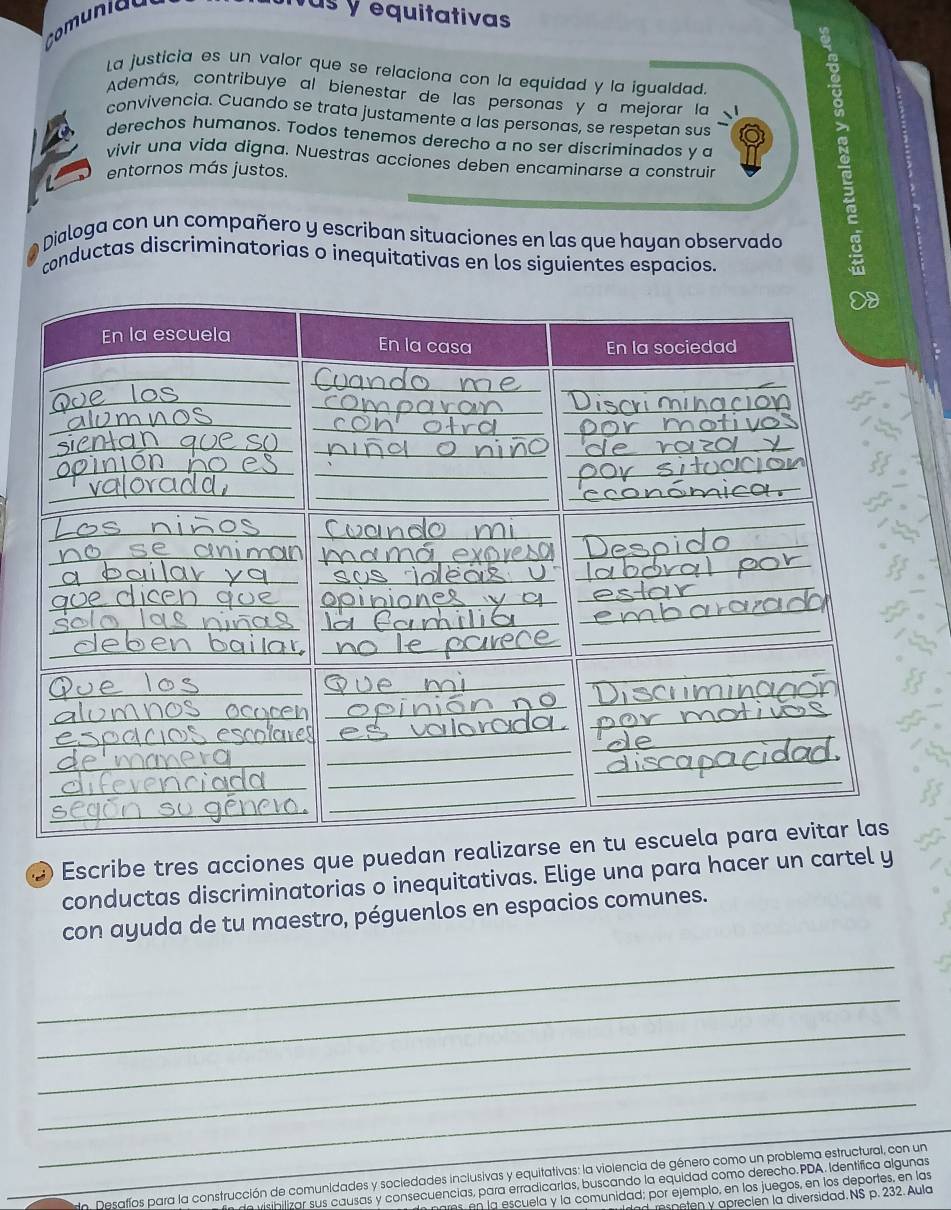 y equitativas
La justicia es un valor que se relaciona con la equidad y la igualdad.
Además, contribuye al bienestar de las personas y a mejorar la
convivencia. Cuando se trata justamente a las personas, se respetan sus
derechos humanos. Todos tenemos derecho a no ser discriminados y a
vivir una vida digna. Nuestras acciones deben encaminarse a construir
entornos más justos.
Ética, naturaleza y sociedades
Dialoga con un compañero y escriban situaciones en las que hayan observado
conductas discriminatorias o inequitativas en los siguientes espacios.
En la escuela
Que los
alumnos
sientan que su
opinión no es
valorada.
Los niños
no se animan
a bailar ya
que dicen que
solo las niñas
deben bailar.
Que los
alumnos ocupen
espacios escolares
de manera
diferenciada
según su género.
En la casa
Cuando me
comparan
con otra
niña o niño
Cuando mi
mamá expresa
sus ideas u
opiniones y a
la familia
no le parece
Que mi
opinión no
es valorada.
En la sociedad
Discriminación
por motivos
de raza y
por situación
económica.
Despido
laboral por
estar
embarazada
Discriminación
por motivos
de
discapacidad.
Escribe tres acciones que puedan realizarse en tu escuela para evitar las
conductas discriminatorias o inequitativas. Elige una para hacer un cartel y
con ayuda de tu maestro, péguenlos en espacios comunes.
Desafíos para la construcción de comunidades y sociedades inclusivas y equitativas: la violencia de género como un problema estructural, con un
de visibilizar sus causas y consecuencias, para erradicarlas, buscando la equidad como derecho. PDA. Identifica algunas
pares, en la escuela y la comunidad; por ejemplo, en los juegos, en los deportes, en las
respeten y aprecien la diversidad. NS p. 232. Aula